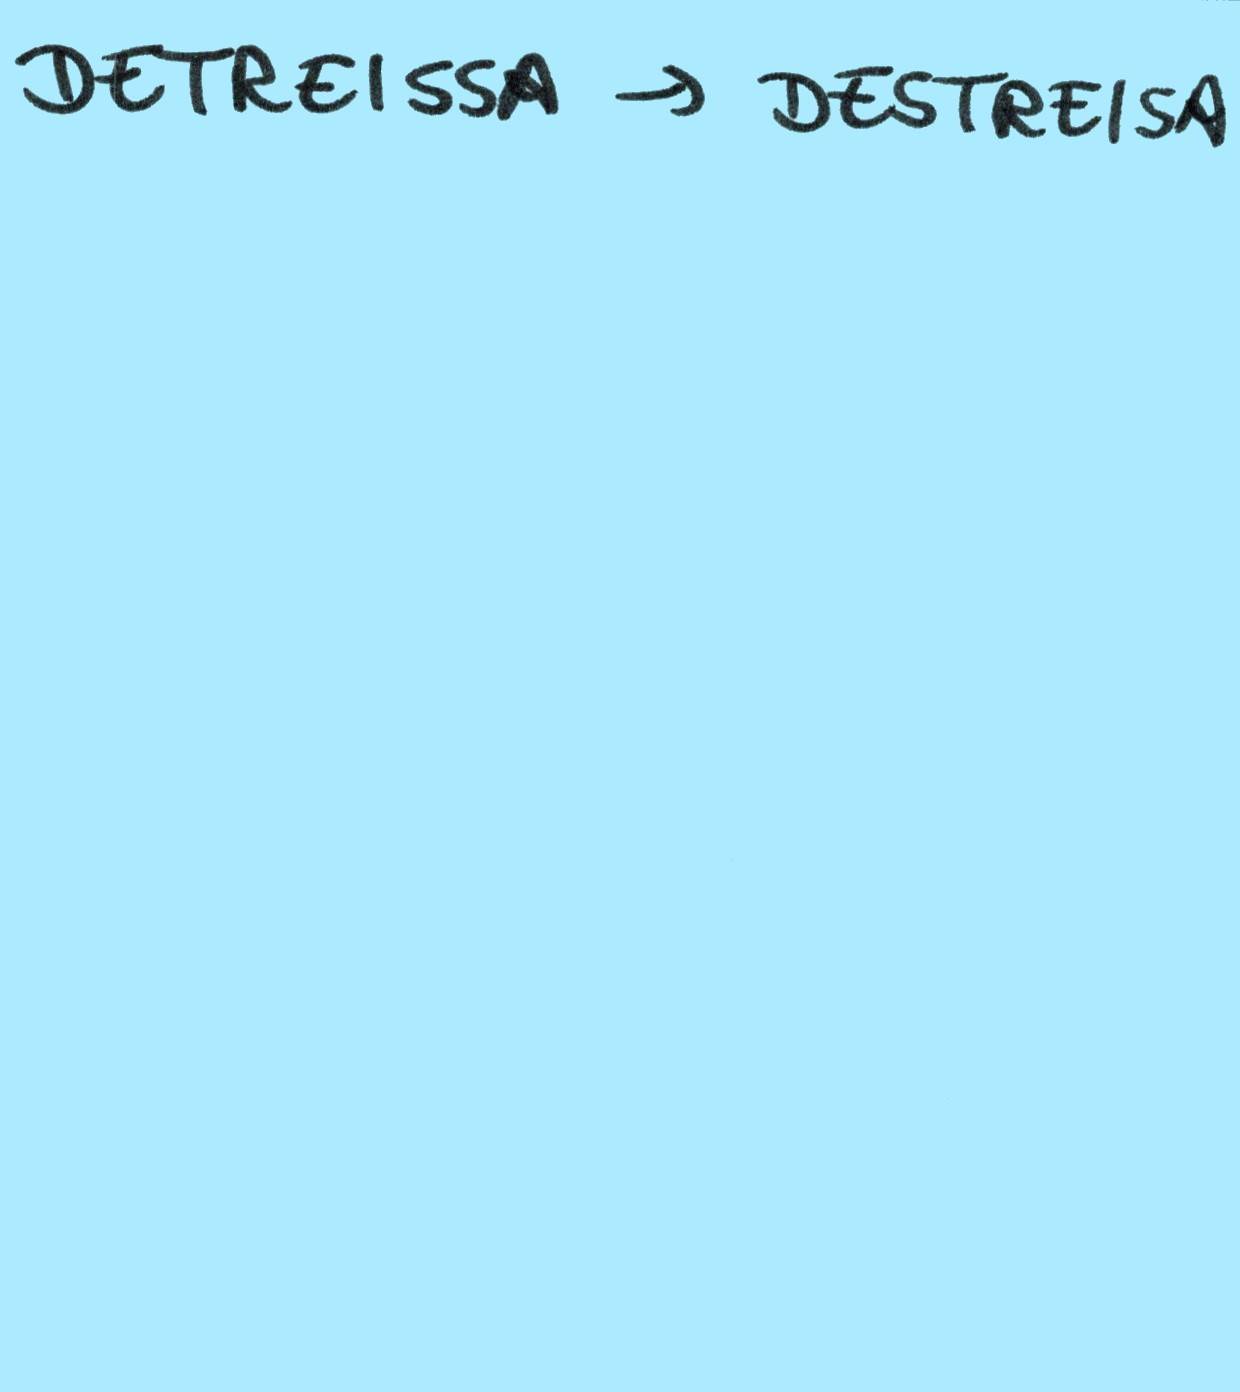 DETREISSA → DESTREISA